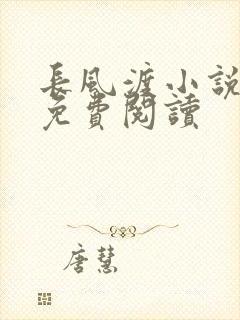 長風渡小說
免費閱讀
唐慧